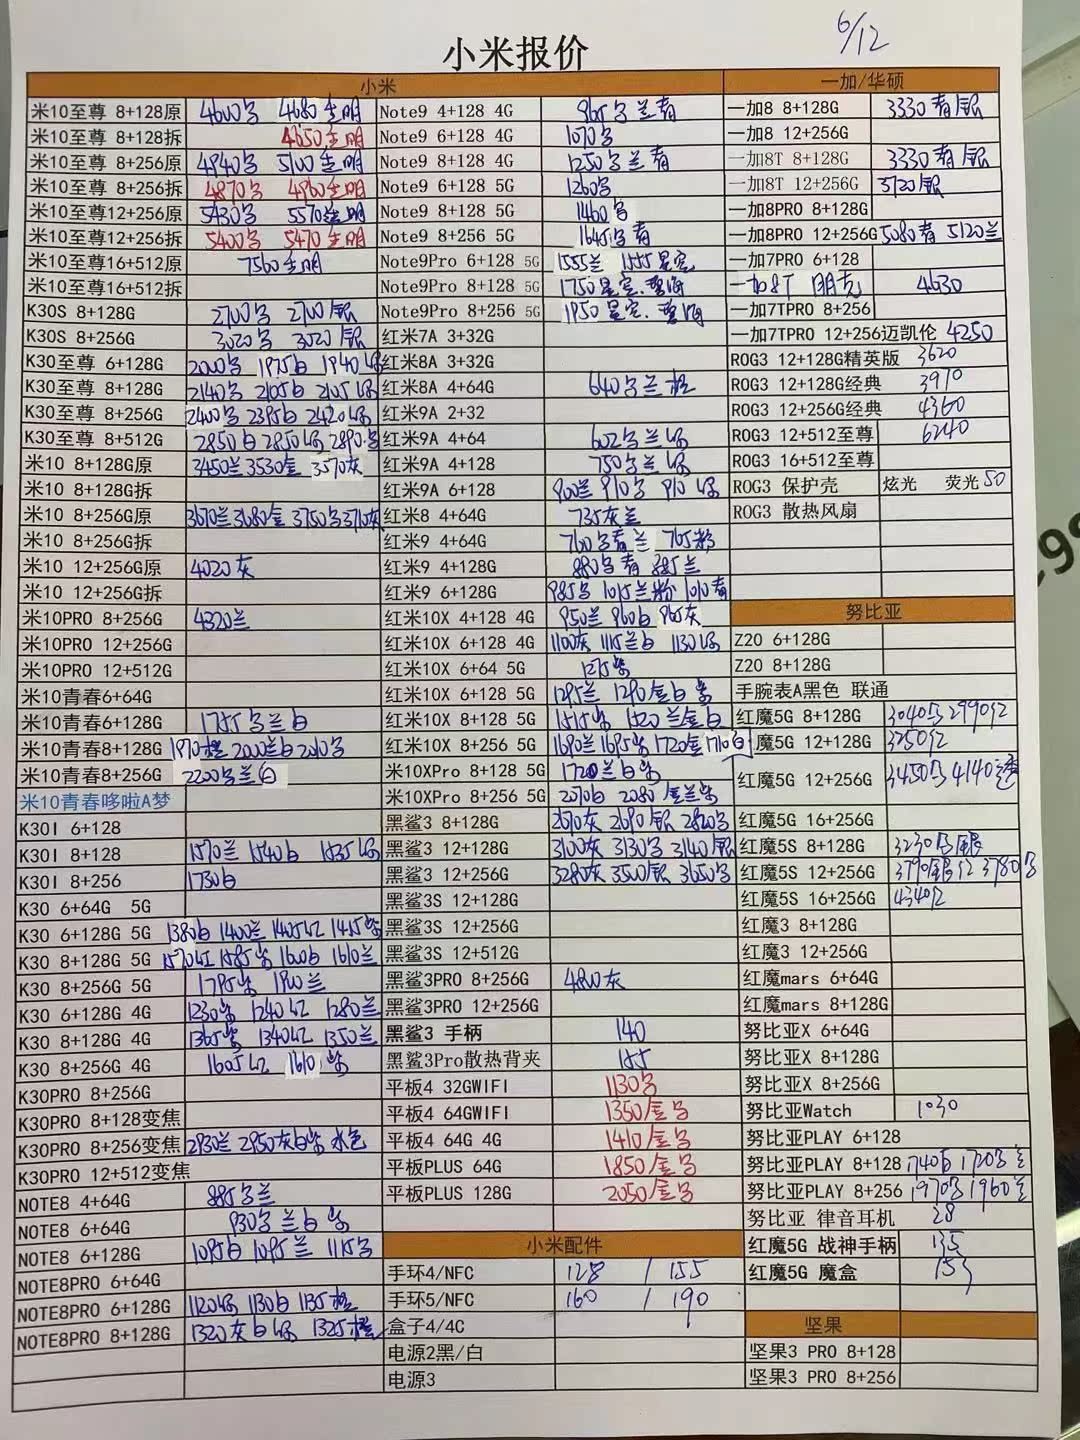 6/12
小米报价
小米
米10至尊 8+128原 4600 4680
米10至尊 8+128拆 4650
米10至尊 8+256原 4940 5100
米10至尊 8+256拆 4870 4960
米10至尊12+256原 5430 5570
米10至尊12+256拆 5400 5470
米10至尊16+512原 7560
米10至尊16+512拆
K30S 8+128G 2700 2700银
K30S 8+256G 3020 3020银
K30至尊 6+128G 2000 1975白 1940绿
K30至尊 8+128G 2140 2105白 2105绿
K30至尊 8+256G 2400 2395白 2420绿
K30至尊 8+512G 2850白 2850绿 2890
米10 8+128G原 3450兰 3530金 3570灰
米10 8+128G拆
米10 8+256G原 3670兰 3680金 3750 3710灰
米10 8+256G拆
米10 12+256G原 4020灰
米10 12+256G拆
米10PRO 8+256G 4320兰
米10PRO 12+256G
米10PRO 12+512G
米10青春6+64G
米10青春6+128G 1755 兰白
米10青春8+128G 1970橙 2000兰白 2010
米10青春8+256G 2200 兰白
米10青春哆啦A梦
K30I 6+128
K30I 8+128 1570兰 1540白 1535绿
K30I 8+256 1730白
K30 6+64G 5G
K30 6+128G 5G 1380白 1400兰 1405红 1415紫
K30 8+128G 5G 1570红 1585紫 1600白 1610兰
K30 8+256G 5G 1795紫 1900兰
K30 6+128G 4G 1230紫 1240红 1280兰
K30 8+128G 4G 1365紫 1340红 1350兰
K30 8+256G 4G 1605红 1610紫
K30PRO 8+256G
K30PRO 8+128变焦
K30PRO 8+256变焦 2930兰 2950灰白紫
K30PRO 12+512变焦
NOTE8 4+64G 885 兰
NOTE8 6+64G 930 兰白紫
NOTE8 6+128G 1095白 1095兰 1115
NOTE8PRO 6+64G
NOTE8PRO 6+128G 1120绿 1130白 1135橙
NOTE8PRO 8+128G 1320灰白绿 1325橙
Note9 4+128 4G 865 兰青
Note9 6+128 4G 1070
Note9 8+128 4G 1250 兰青
Note9 6+128 5G 1260
Note9 8+128 5G 1460
Note9 8+256 5G 1645 青
Note9Pro 6+128 5G 1555兰 1555星空
Note9Pro 8+128 5G 1750星空.碧海
Note9Pro 8+256 5G 1950星空.碧海
红米7A 3+32G
红米8A 3+32G
红米8A 4+64G 640 兰橙
红米9A 2+32
红米9A 4+64 602 兰绿
红米9A 4+128 750 兰绿
红米9A 6+128 900兰 910 910绿
红米8 4+64G 735灰兰
红米9 4+64G 760 青兰 765粉
红米9 4+128G 880 青 885兰
红米9 6+128G 985 1015兰粉 1010青
红米10X 4+128 4G 950兰 960白 965灰
红米10X 6+128 4G 1100灰 1115兰白 1130绿
红米10X 6+64 5G 1275紫
红米10X 6+128 5G 1295兰 1290金白紫
红米10X 8+128 5G 1515紫 1520兰金白
红米10X 8+256 5G 1690兰 1695紫 1720金 1710白
米10XPro 8+128 5G 1720兰白紫
米10XPro 8+256 5G 2070白 2080金兰紫
黑鲨3 8+128G 2670灰 2690银 2820
黑鲨3 12+128G 3100灰 3130 3140银
黑鲨3 12+256G 3280灰 3500银 3650
黑鲨3S 12+128G
黑鲨3S 12+256G
黑鲨3S 12+512G
黑鲨3PRO 8+256G 4800灰
黑鲨3PRO 12+256G
黑鲨3 手柄 140
黑鲨3Pro散热背夹 155
平板4 32GWIFI 1130
平板4 64GWIFI 1350金
平板4 64G 4G 1410金
平板PLUS 64G 1850金
平板PLUS 128G 2050金
小米配件
手环4/NFC 128 / 155
手环5/NFC 160 / 190
盒子4/4C
电源2黑/白
电源3
一加/华硕
一加8 8+128G 3330青银
一加8 12+256G
一加8T 8+128G 3330青银
一加8T 12+256G 3720银
一加8PRO 8+128G
一加8PRO 12+256G 5080青 5120兰
一加7PRO 6+128
一加8T 朋克 4630
一加7TPRO 8+256
一加7TPRO 12+256迈凯伦 4250
ROG3 12+128G精英版 3620
ROG3 12+128G经典 3970
ROG3 12+256G经典 4360
ROG3 12+512至尊 6240
ROG3 16+512至尊
ROG3 保护壳 炫光 荧光50
ROG3 散热风扇
努比亚
Z20 6+128G
Z20 8+128G
手腕表A黑色 联通
红魔5G 8+128G 3040 2990红
魔5G 12+128G 3250红
红魔5G 12+256G 3450 4140
红魔5G 16+256G
红魔5S 8+128G 3230 银
红魔5S 12+256G 3790银红 3780
红魔5S 16+256G 4340红
红魔3 8+128G
红魔3 12+256G
红魔mars 6+64G
红魔mars 8+128G
努比亚X 6+64G
努比亚X 8+128G
努比亚X 8+256G
努比亚Watch 1030
努比亚PLAY 6+128
努比亚PLAY 8+128 1740白 1720
努比亚PLAY 8+256 1970 1960
努比亚 律音耳机 28
红魔5G 战神手柄 135
红魔5G 魔盒 155
坚果
坚果3 PRO 8+128
坚果3 PRO 8+256